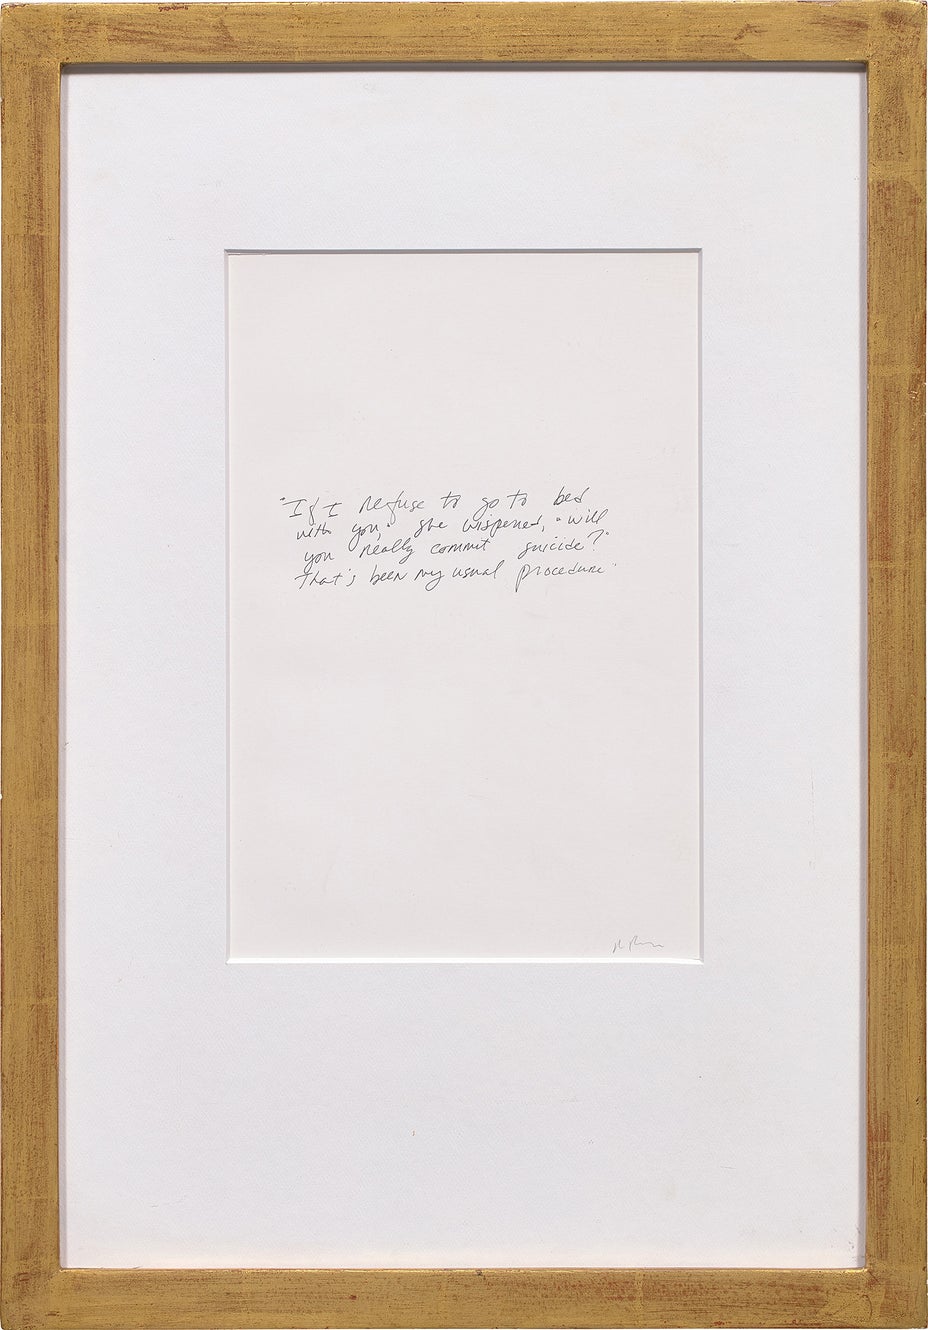 "If I refuse to go to bed
with you," she wispered, "will
you really commit suicide?"
That's been my usual procedure.